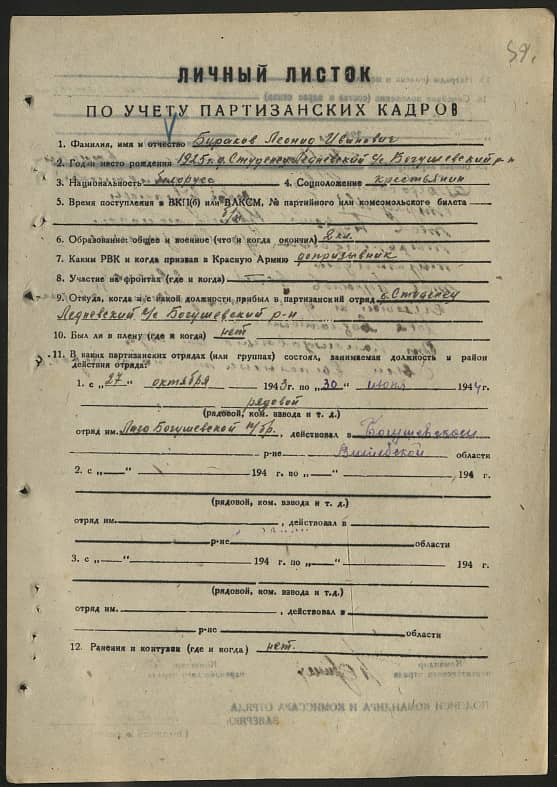 59.
ЛИЧНЫЙ ЛИСТОК
ПО УЧЕТУ ПАРТИЗАНСКИХ КАДРОВ
1. Фамилия, имя и отчество Бураков Леонид Иванович
2. Год и место рождения 1925 г. д. Студенец Ледневский с/с Богушевский р-н
3. Национальность белорус 4. Соцположение крестьянин
5. Время поступления в ВКП(б) или ВЛКСМ, № партийного или комсомольского билета
б/п
6. Образование: общее и военное (что и когда окончил) 2 кл.
7. Каким РВК и когда призван в Красную Армию допризывник
8. Участие на фронтах (где и когда)
9. Откуда, когда и с какой должности прибыл в партизанский отряд д. Студенец
Ледневский с/с Богушевский р-н
10. Был ли в плену (где и когда) нет
11. В каких партизанских отрядах (или группах) состоял, занимаемая должность и район
действия отряда:
1. с „27“ октября 1943 г. по „30“ июня 1944 г.
рядовой
(рядовой, ком. взвода и т. д.)
отряд им. Лазо Богушевской п/бр., действовал в Богушевском
р-не Витебской области
2. с „ “ 194 г. по „ “ 194 г.
(рядовой, ком. взвода и т. д.)
отряд им. , действовал в
р-не области
3. с „ “ 194 г. по „ “ 194 г.
(рядовой, ком. взвода и т.д.)
отряд им. , действовал в
р-не области
12. Ранения и контузии (где и когда) нет.